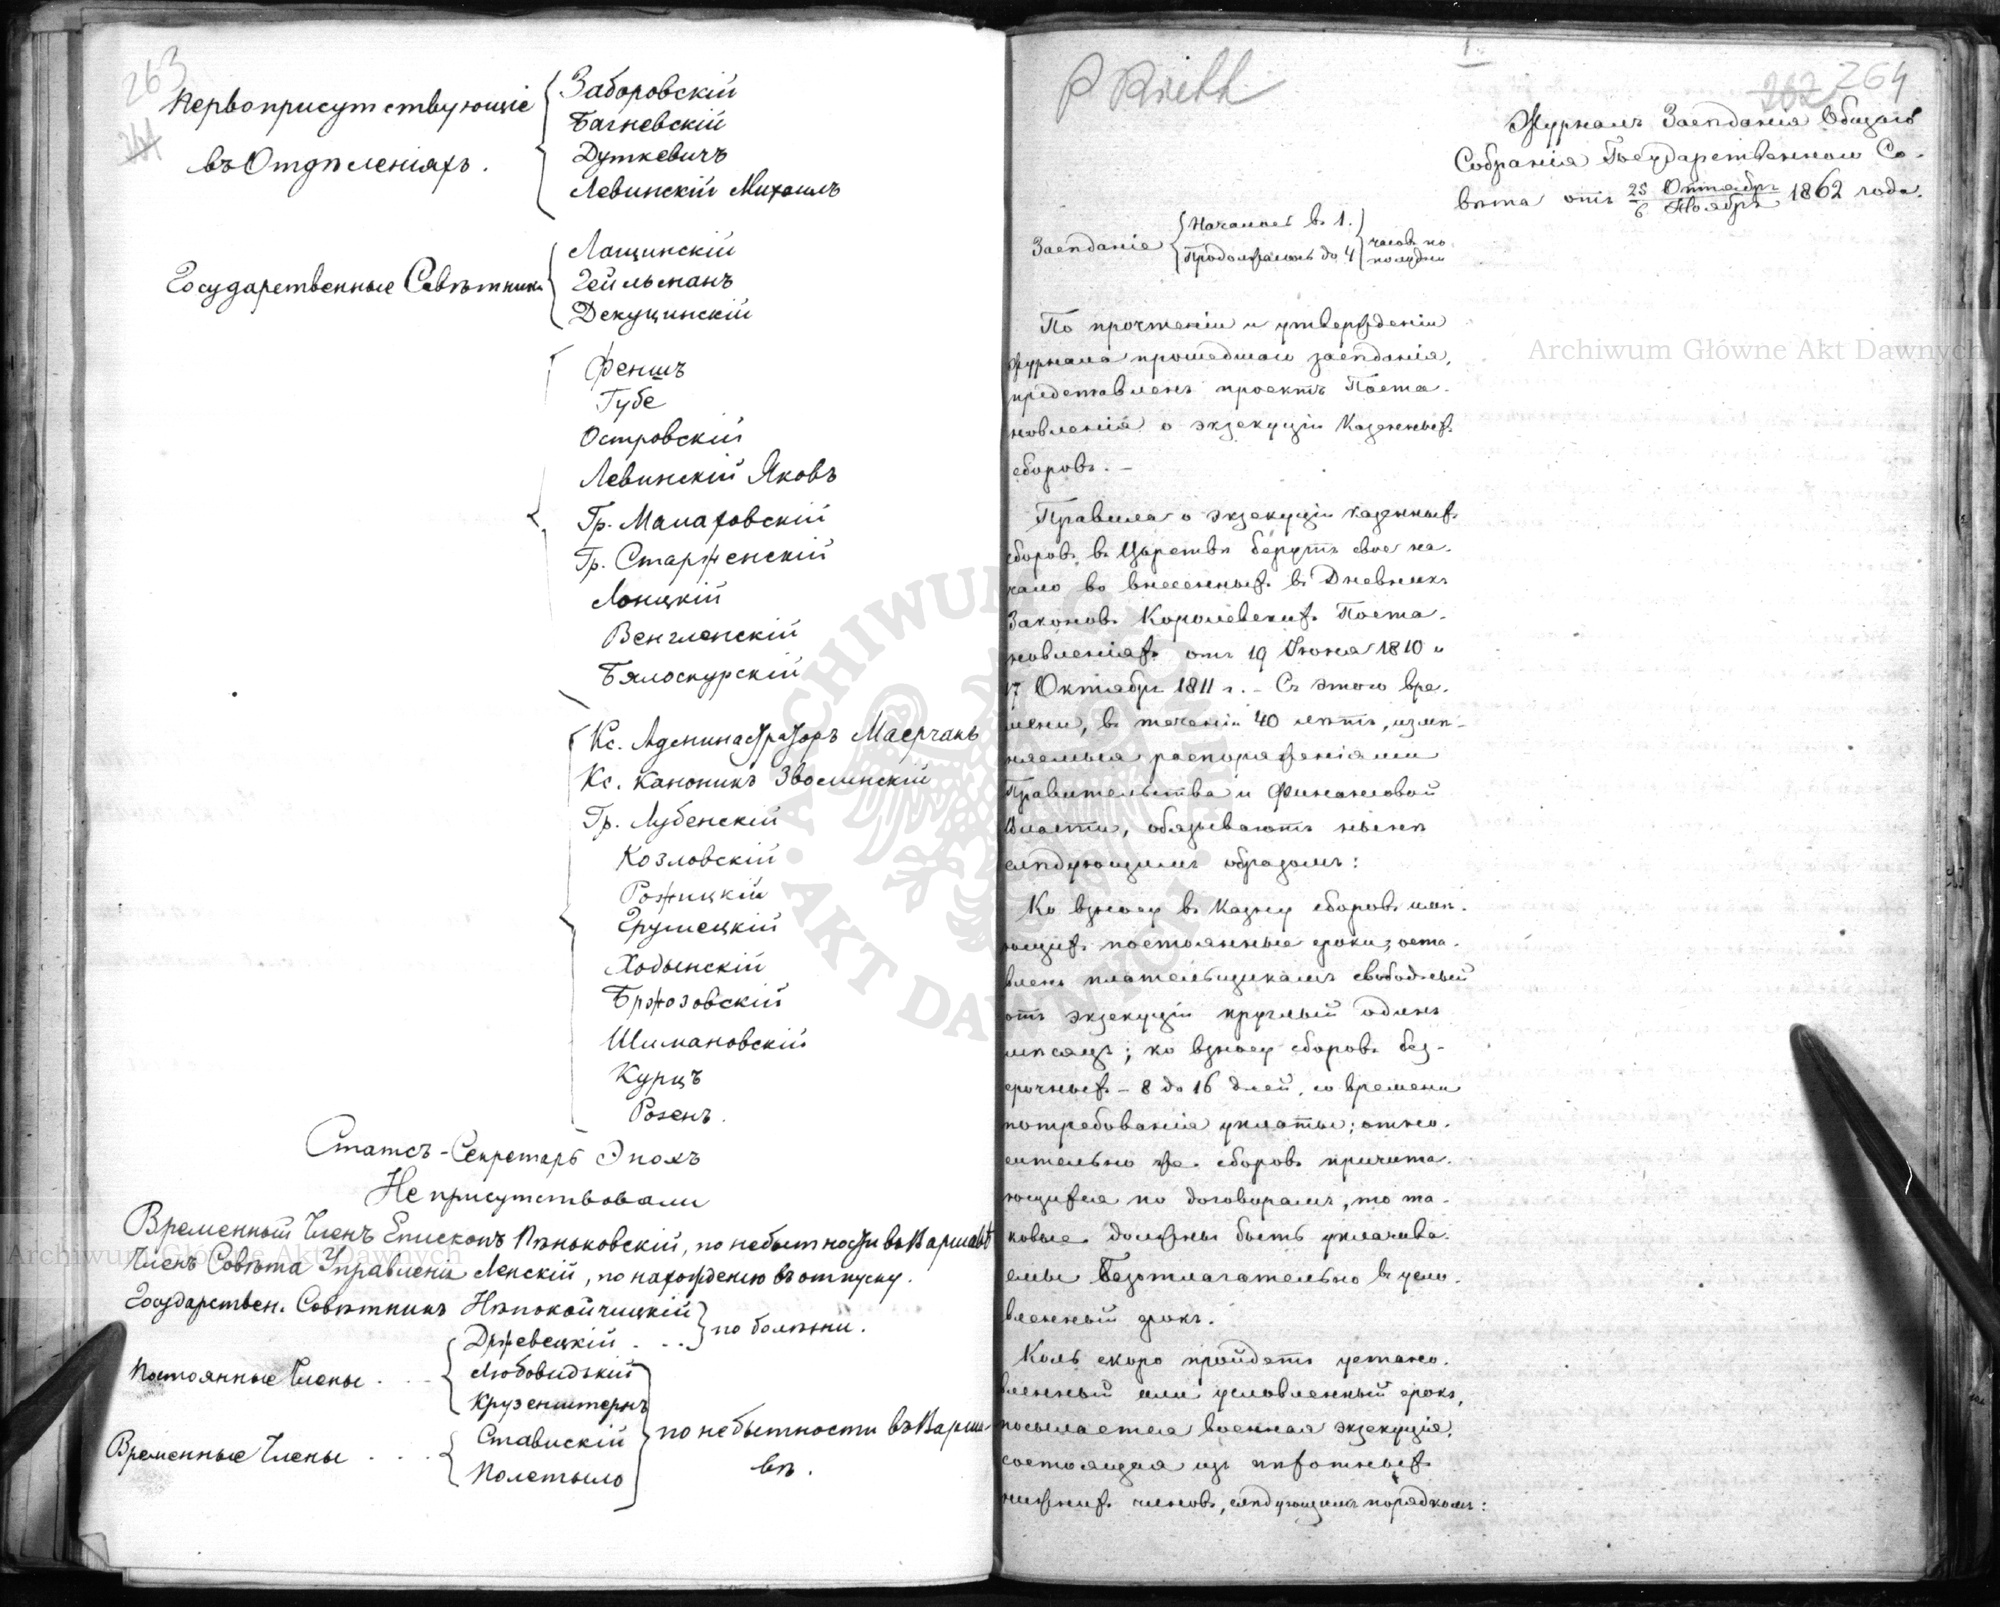 263
Первоприсутствующіе
въ Отдѣленіяхъ.
Заборовскій
Багневскій
Дуткевичъ
Левинскій Михаилъ
Государственные Совѣтники
Лащинскій
Гейльманъ
Декуцинскій
Феншъ
Губе
Островскій
Левинскій Яковъ
Гр. Малаховскій
Гр. Старженскій
Лонцкій
Венгленскій
Бялоскурскій
Кс. Администраторъ Маерчакъ
Кс. Каноникъ Зволинскій
Гр. Лубенскій
Козловскій
Рожицкій
Ерулецкій
Ходынскій
Бржозовскій
Шимановскій
Курцъ
Розенъ.
Статсъ-Секретарь Энохъ
Не присутствовали
Временный Членъ Епископъ Пѣньковскій, по небытности въ Варшавѣ
Членъ Совѣта Управленія Ленскій, по нахожденію въ отпуску.
Государствен. Совѣтникъ Нѣпокойчицкій
Држевецкій . . . по болѣзни.
Постоянные Члены . . .
Любовидзкій
Крузенштернъ
Временные Члены . . .
Ставискій
Полетыло
по небытности въ Варша-
вѣ.
1.
262 264
Журналъ Засѣданія Общаго
Собранія Государственнаго Со-
вѣта отъ 25 Октября / 6 Ноября 1862 года.
Засѣданіе
Началось въ 1.
Продолжалось до 4
часовъ по
полудни
По прочтеніи и утвержденіи
журнала прошедшаго засѣданія,
представленъ проектъ Поста-
новленія о экзекуціи Казенныхъ
сборовъ. —
Правила о экзекуціи казенныхъ
сборовъ въ Царствѣ берутъ свое на-
чало во внесенныхъ въ Дневникъ
Законовъ Королевскихъ Поста-
новленіяхъ отъ 19 Іюня 1810 и
17 Октября 1811 г. — Съ этого вре-
мени, въ теченіи 40 лѣтъ, измѣ-
няемыя распоряженіями
Правительства и Финансовой
Власти, обязываютъ нынѣ
слѣдующимъ образомъ:
Ко взносу въ Казну сборовъ имѣ-
ющихъ постоянные сроки, оста-
вленъ плательщикамъ свободный
отъ экзекуціи круглый одинъ
мѣсяцъ; ко взносу сборовъ без-
срочныхъ — 8 до 16 дней, со времени
потребованія уплаты; относ-
ительно же сборовъ причита-
ющихся по договорамъ, то та-
ковые должны быть уплачива-
емы безотлагательно въ усло-
вленный срокъ.
Коль скоро пройдетъ устано-
вленный или условленный срокъ,
посылается военная экзекуція,
состоящая изъ пѣхотныхъ
нижнихъ чиновъ, слѣдующимъ порядкомъ:
Archiwum Główne Akt Dawnych
Archiwum Główne Akt Dawnych